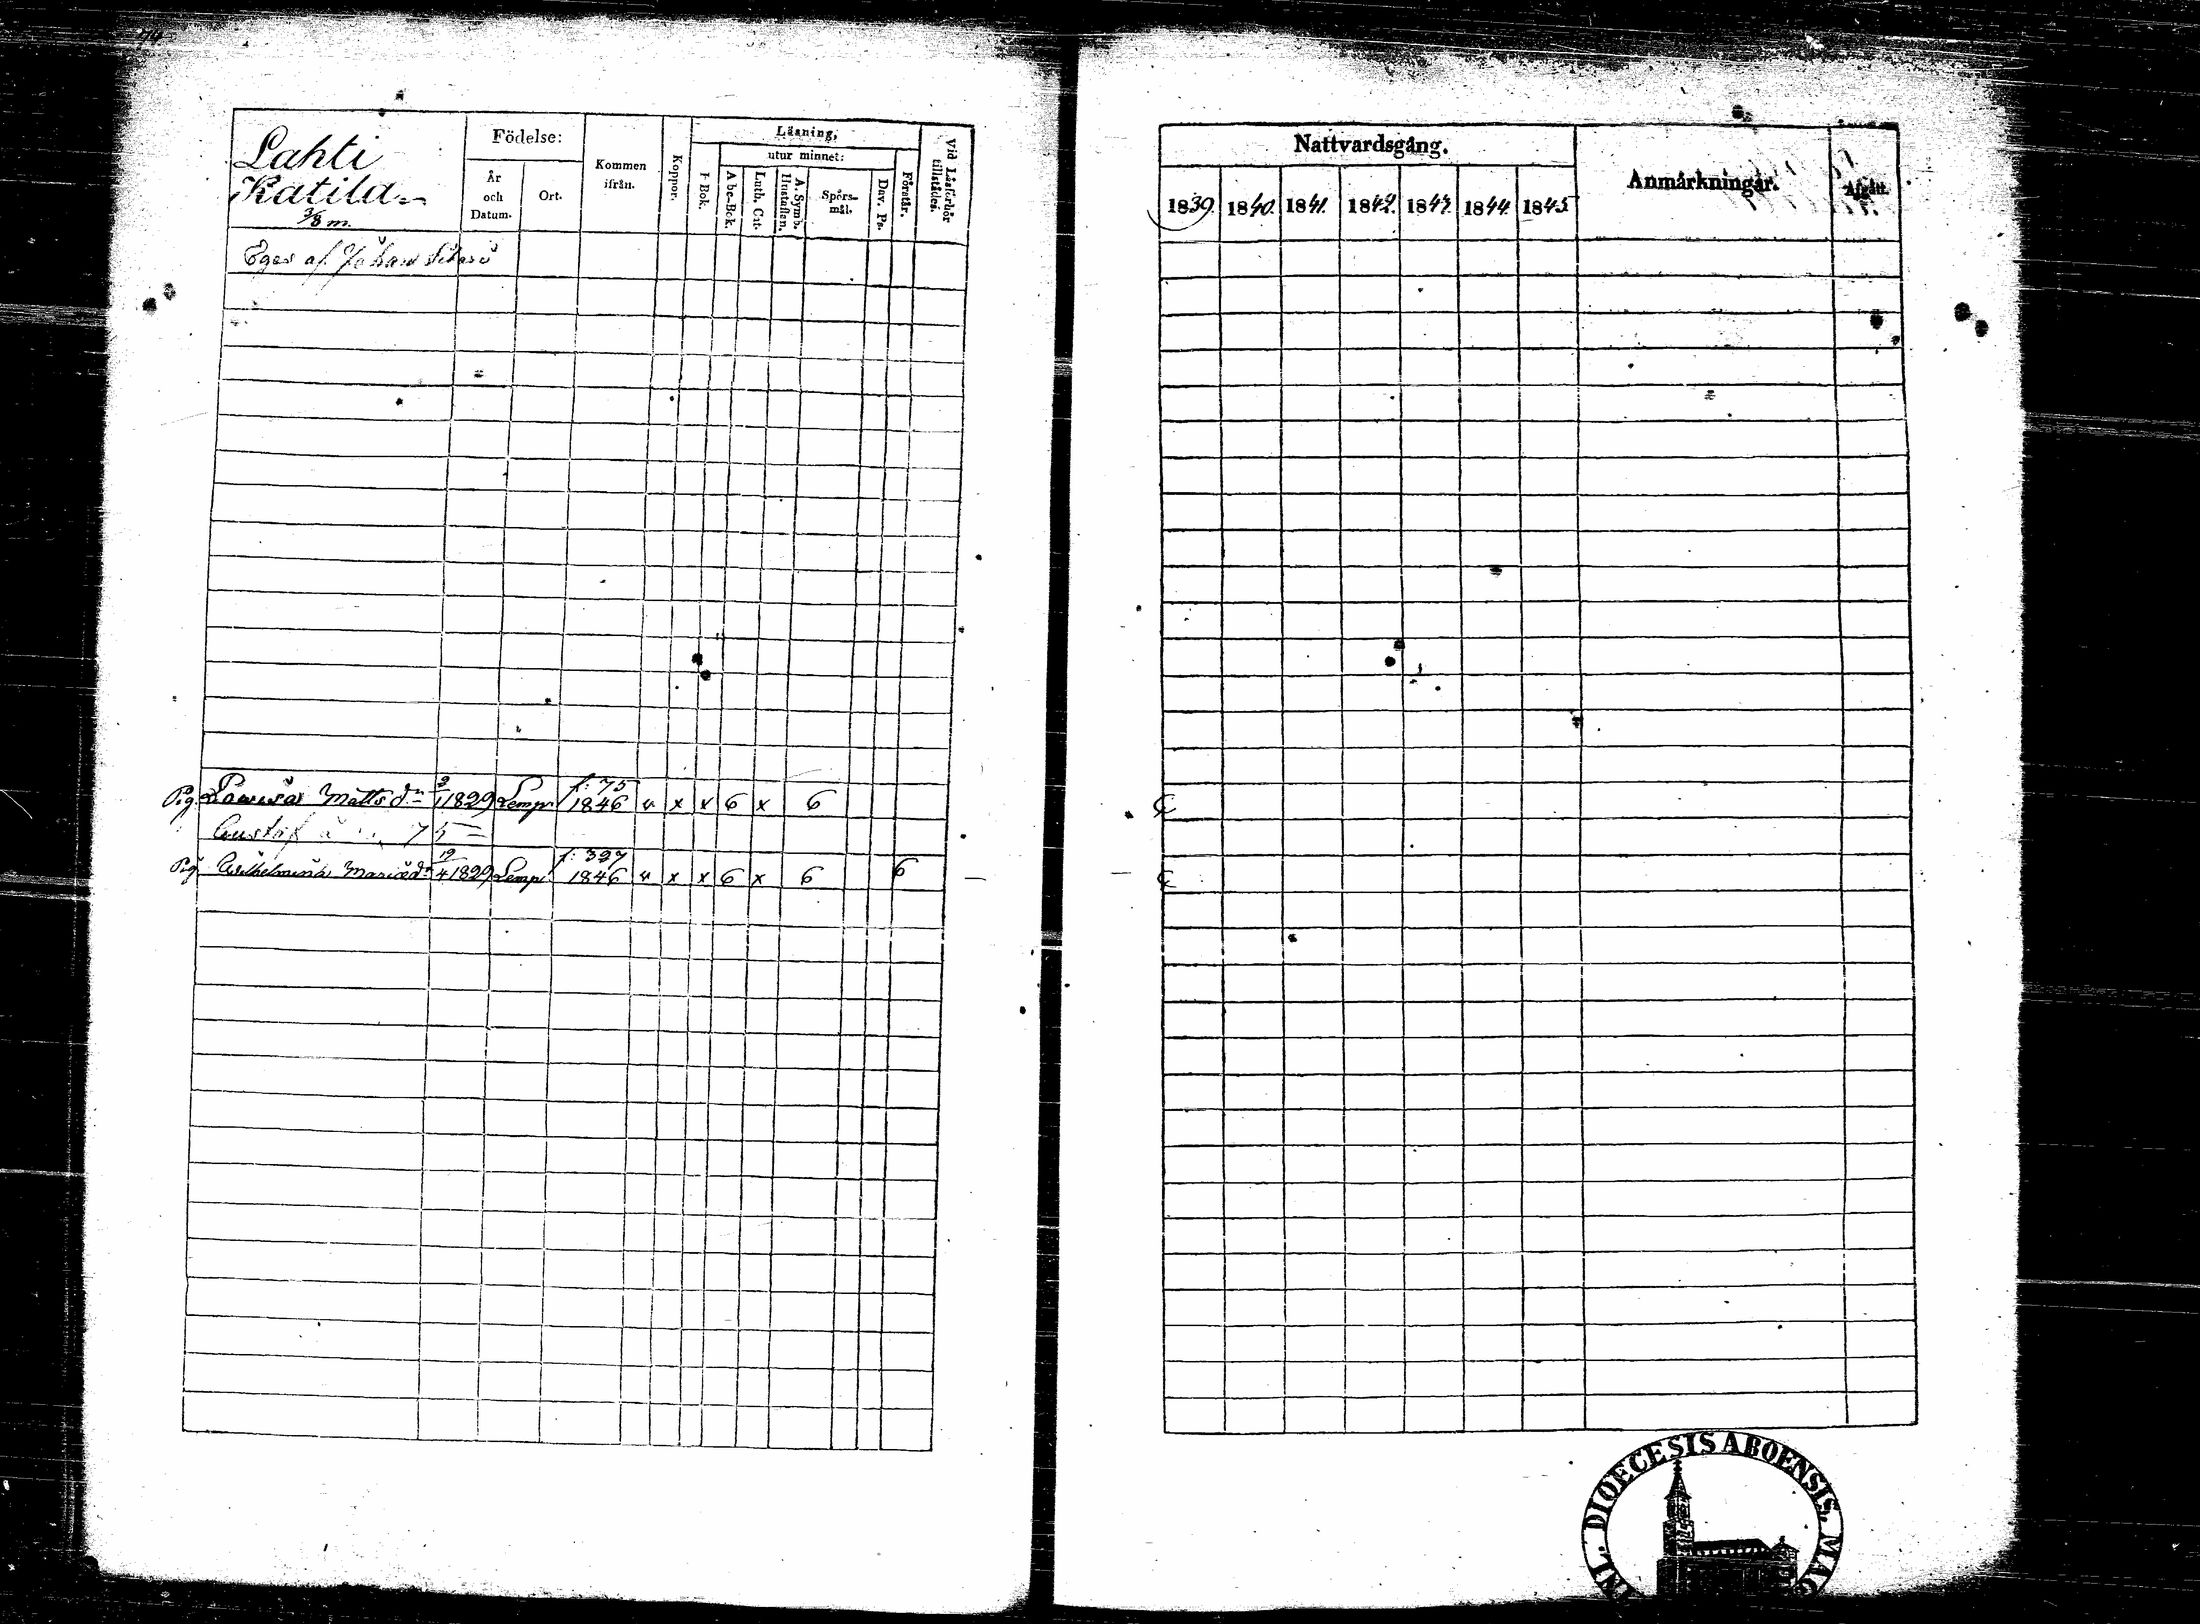 Lahti
Katila
3/8 m.
Födelse:
År och Datum.
Ort.
Kommen ifrån.
Koppor.
Läsning,
I Bok.
utur minnet:
A be-Bok.
Luth. Cat.
A. Symb. Hustaflan.
Spörs-mål.
Dav. Ps.
Förstår.
Vid Läsförhör tillstädes.
Eges af Johan
Pig. Lovisa Matts dr 3/1 1829 Lemp. f: 75 1846 v x x 6 x 6
Gustaf 75
Pig Wilhelmina Mariædr 19/4 1829 Lemp. f: 327 1846 v x x 6 x 6 6
Nattvardsgång.
Anmärkningar.
Afgått.
1839. 1840. 1841. 1842. 1843. 1844. 1845
DIOECESIS ABOENSIS. MAG